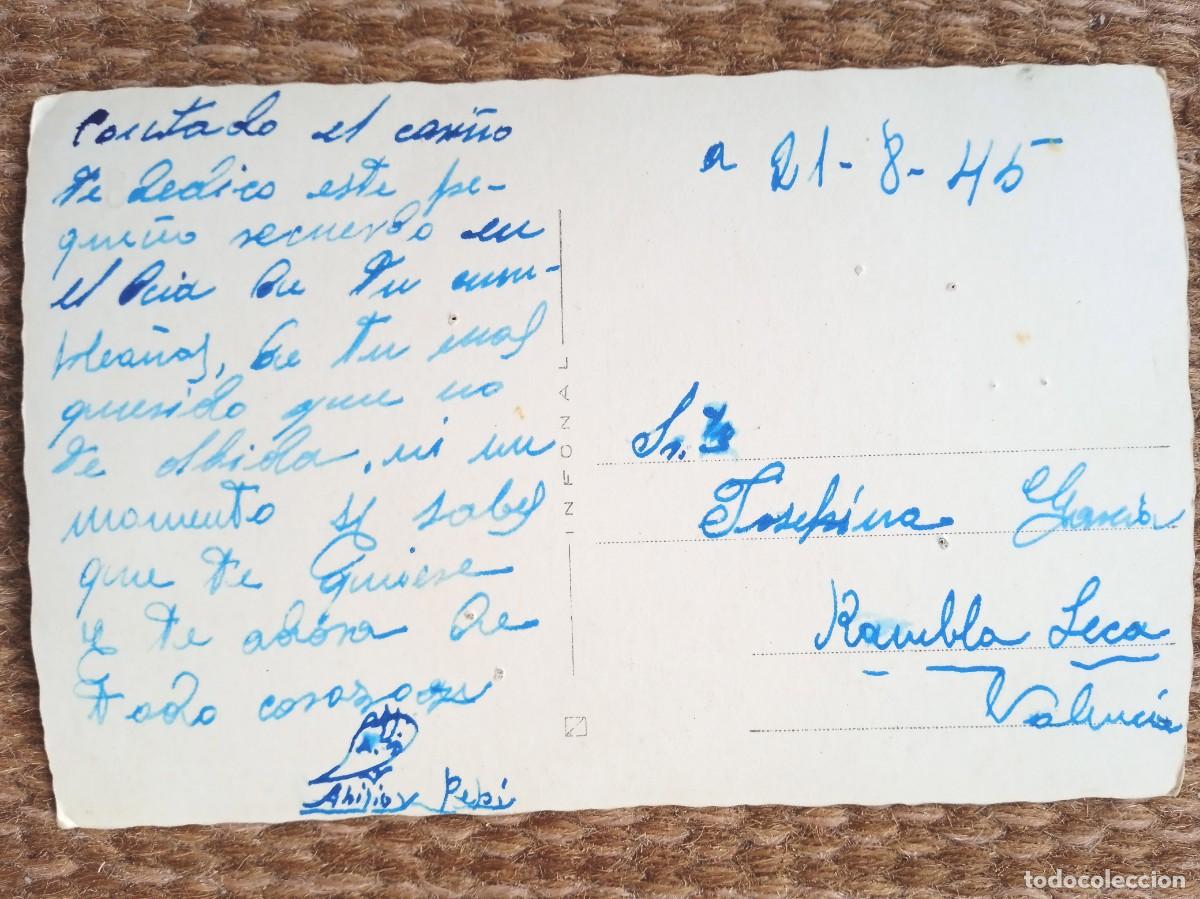 Con tado el cariño
te dedico este pe-
queño recuerdo en
el Dia de tu cum-
pleaños, de tu mas
querido que no
te olbida, ni un
momento y sabes
que te Quiere
y te adóra de
todo corazon
Abilio y Pepi
INFONAL
a 21-8-45
Sr. ta
Josefina García
Rambla Seca
Valencia
todocoleccion